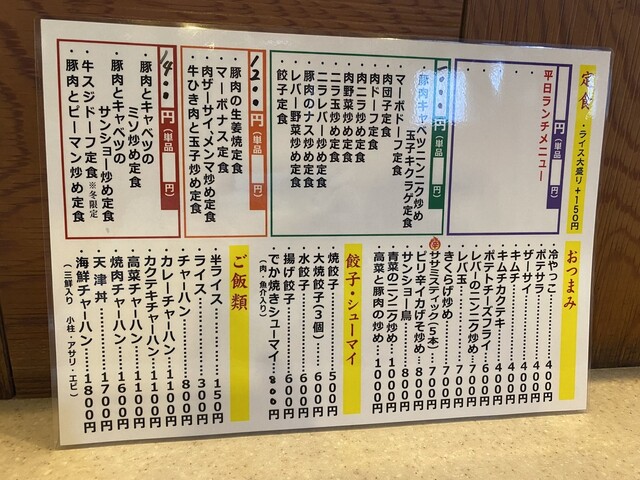 定食
・ライス大盛り+150円
円(単品 円)
平日ランチメニュー
・
・
・
・
円(単品 円)
・豚肉キャベツニンニク炒め
玉子キクラゲ定食
マーボドーフ定食
肉団子定食
肉ドーフ定食
肉ニラ炒め定食
肉野菜炒め定食
ニラ玉炒め定食
ニラレバー炒め定食
豚肉のナス炒め定食
レバー野菜炒め定食
餃子定食
1200円(単品 円)
豚肉の生姜焼定食
マーボナス定食
肉ザーサイ、メンマ炒め定食
牛ひき肉と玉子炒め定食
1400円(単品 円)
豚肉とキャベツの
ミソ炒め定食
豚肉とキャベツの
サンショー炒め定食
牛スジドーフ定食※冬限定
豚肉とピーマン炒め定食
おつまみ
冷やっこ……400円
ポテサラ……400円
ザーサイ……400円
キムチ……400円
キムチカクテキ……400円
ポテトチーズフライ…600円
レバーのニンニク炒め…700円
レバ玉……700円
きくらげ炒め……700円
ササミスティック(5本)…700円
ピリ辛ユカげそ炒め…800円
サンショー鳥……800円
青菜のニンニク炒め…1000円
高菜と豚肉の炒め…1000円
餃子・シューマイ
焼餃子……500円
大焼餃子(3個)…600円
水餃子……600円
揚げ餃子……600円
でか焼きシューマイ…800円
(肉・魚介入り)
ご飯類
半ライス……150円
ライス……300円
チャーハン……800円
カレーチャーハン…1100円
カクテキチャーハン…1100円
高菜チャーハン……1100円
焼肉チャーハン……1600円
天津丼……1700円
海鮮チャーハン……1800円
(三鮮入り 小柱・アサリ・エビ)